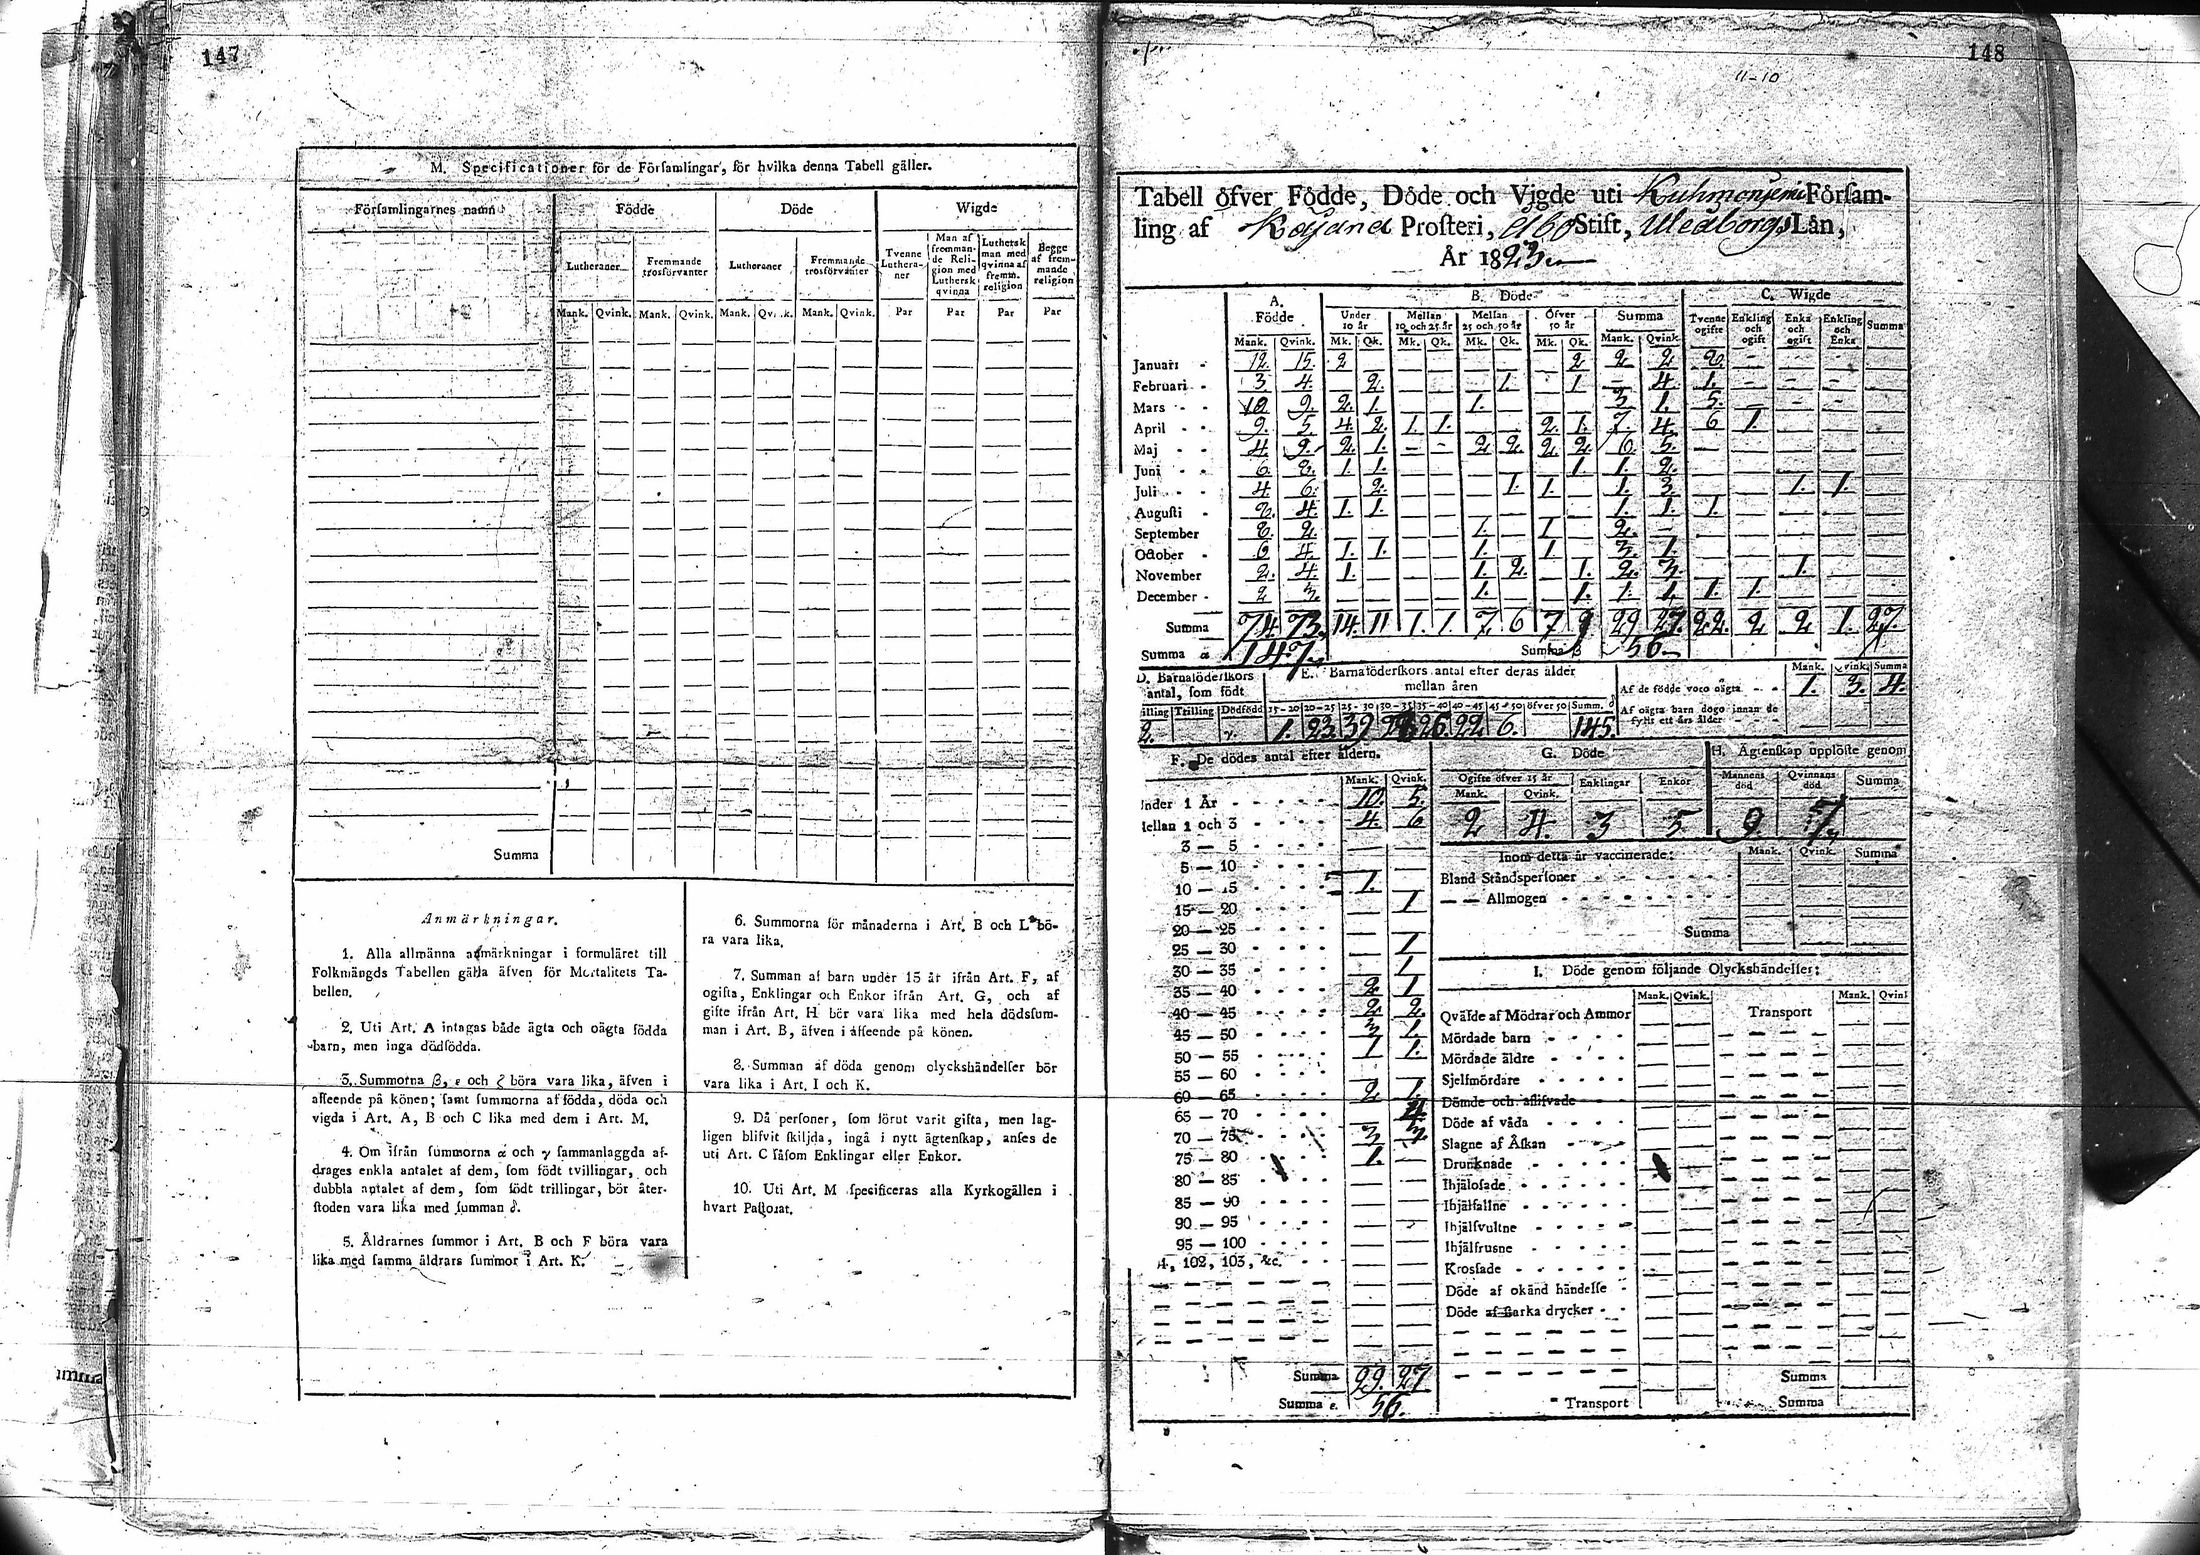 147
M. Specificationer för de Församlingar, för hvilka denna Tabell gäller.
Församlingarnes namn Födde Döde Wigde
Lutheraner Fremmande trosförvanter Lutheraner Fremmande trosförvanter Tvenne Lutheraner Man af fremmande Religion med Luthersk qvinna Luthersk man med qvinna af fremm. religion Begge af fremmande religion
Mank. Qvink. Mank. Qvink. Mank. Qvink. Mank. Qvink. Par Par Par Par
Summa
Anmärkningar.
1. Alla allmänna anmärkningar i formuläret till
Folkmängds Tabellen gälla äfven för Mortalitets Ta-
bellen.
2. Uti Art. A intagas både ägta och oägta födda
barn, men inga dödfödda.
3. Summorna β, ε och ζ böra vara lika, äfven i
afseende på könen; samt summorna af födda, döda och
vigda i Art. A, B och C lika med dem i Art. M.
4. Om ifrån summorna α och γ sammanlaggda af-
drages enkla antalet af dem, som födt tvillingar, och
dubbla antalet af dem, som födt trillingar, bör åter-
stoden vara lika med summan δ.
5. Åldrarnes summor i Art. B och F böra vara
lika med samma åldrars summor i Art. K.
6. Summorna för månaderna i Art. B och L bö-
ra vara lika.
7. Summan af barn under 15 år ifrån Art. F, af
ogifta, Enklingar och Enkor ifrån Art. G, och af
gifte ifrån Art. H bör vara lika med hela dödssum-
man i Art. B, äfven i afseende på könen.
8. Summan af döda genom olyckshändelser bör
vara lika i Art. I och K.
9. Då personer, som förut varit gifta, men lag-
ligen blifvit skiljda, ingå i nytt ägtenskap, anses de
uti Art. C såsom Enklingar eller Enkor.
10. Uti Art. M specificeras alla Kyrkogällen i
hvart Pastorat.
148
11-10
Tabell öfver Födde, Döde och Vigde uti Kuhmoniemi Försam-
ling af Kajana Prosteri, Åbo Stift, Uleåborgs Län,
År 1823
A. Födde B. Döde C. Wigde
Under 10 år Mellan 10 och 25 år Mellan 25 och 50 år Öfver 50 år Summa Tvenne ogifte Enkling och ogift Enka och ogift Enkling och Enka Summa
Mank. Qvink. Mk. Qk. Mk. Qk. Mk. Qk. Mk. Qk. Mank. Qvink.
Januari 12. 15. 2 2 2 2. 2.
Februari 3 4. 2. 1. 1 4. 1.
Mars 9. 2. 1. 1. 3 1. 5.
April 9. 5. 4. 2. 1. 1. 2. 1. 7. 4. 6 1.
Maj 4. 9. 2. 1. 2 2. 2 2. 6. 5.
Juni 6. 8. 1. 1. 1. 1. 2.
Juli 4. 6. 2. 1. 1. 1. 3. 1. 1.
Augusti 4. 1. 1. 1. 1. 1.
September 8. 2. 1. 1 2.
October 6 4. 1. 1. 1. 1. 3. 1.
November 2. 4. 1. 1. 2. 1. 2. 3. 1.
December 2 3. 1. 1. 1. 1. 1. 1.
Summa 74. 73. 14. 11 1. 1. 7. 6 7 9 29 27. 22. 2 2 1. 27.
Summa α 147. Summa β 56
D. Barnaföderskors antal, som födt
E. Barnaföderskors antal efter deras ålder mellan åren
Mank. Qvink. Summa
Af de födde voro oägta 1. 3. 4.
Af oägta barn dogo innan de fyllt ett års ålder
Tvilling Trilling Dödfödd 15-20 20-25 25-30 30-35 35-40 40-45 45-50 öfver 50 Summ. δ
2. 1. 23. 39 26. 22. 6. 145.
F. De dödes antal efter åldern.
Mank. Qvink.
Under 1 År 10. 5.
Mellan 1 och 3 4. 6
3 — 5
5 — 10
10 — 15 1.
15 — 20 1
20 — 25
25 — 30 1
30 — 35 1
35 — 40 2 1
40 — 45 2. 2.
45 — 50 3 1.
50 — 55 1 1.
55 — 60
60 — 65 2 1.
65 — 70 4.
70 — 75 3 3.
75 — 80 1.
80 — 85
85 — 90
90 — 95
95 — 100
102, 103, &c.
Summa 29. 27
Summa ε. 56.
G. Döde
Ogifte öfver 15 år Enklingar Enkor
Mank. Qvink.
2 4. 3 5
H. Ägtenskap upplöste genom
Mannens död Qvinnans död Summa
9
Inom detta år vaccinerade: Mank. Qvink. Summa
Bland Ståndspersoner
— — Allmogen
Summa
I. Döde genom följande Olyckshändelser:
Mank. Qvink. Mank. Qvink
Qväfde af Mödrar och Ammor Transport
Mördade barn
Mördade äldre
Sjelfmördare
Dömde och aflifvade
Döde af våda
Slagne af Åskan
Drunknade
Ihjälosade
Ihjälfallne
Ihjälsvultne
Ihjälfrusne
Krossade
Döde af okänd händelse
Döde af starka drycker
Summa
Transport Summa